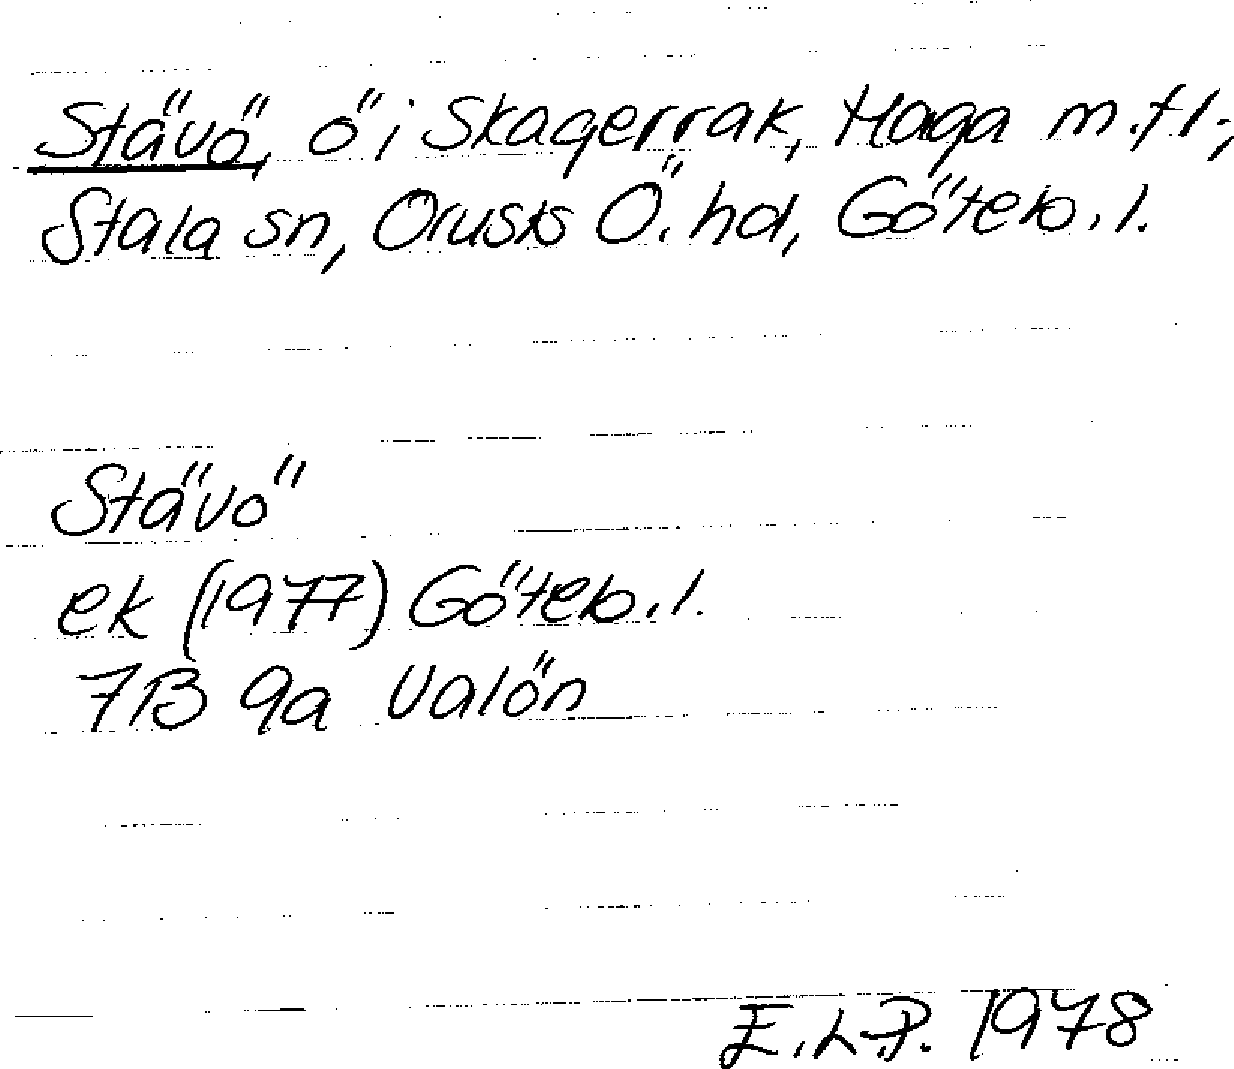 Stävö, ö i Skagerrak, Haga m.fl.,
Stala sn, Orusts Ö. hd, Göteb. l.
Stävö
ek (1977) Göteb. l.
7B 9a Valön
E.L.P. 1978